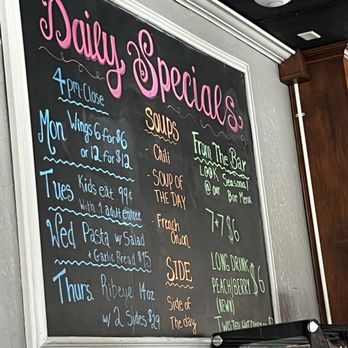 Daily Specials
4pm-Close
Mon Wings 6 for $6
or 12 for $12
Tues Kids eat 99¢
with 1 adult entree
Wed Pasta w/ Salad
+ Garlic Bread $15
Thurs. Ribeye 14oz
w/ 2 Sides $29
SOUPS
Chili
SOUP OF
THE DAY
French
Onion
SIDE
Side of
The day
From The Bar
LOOK Seasonal
@ our
Bar Menu
7+7 $6
LONG DRINK
PEACH/BERRY $6
(NEW)
TWISTED